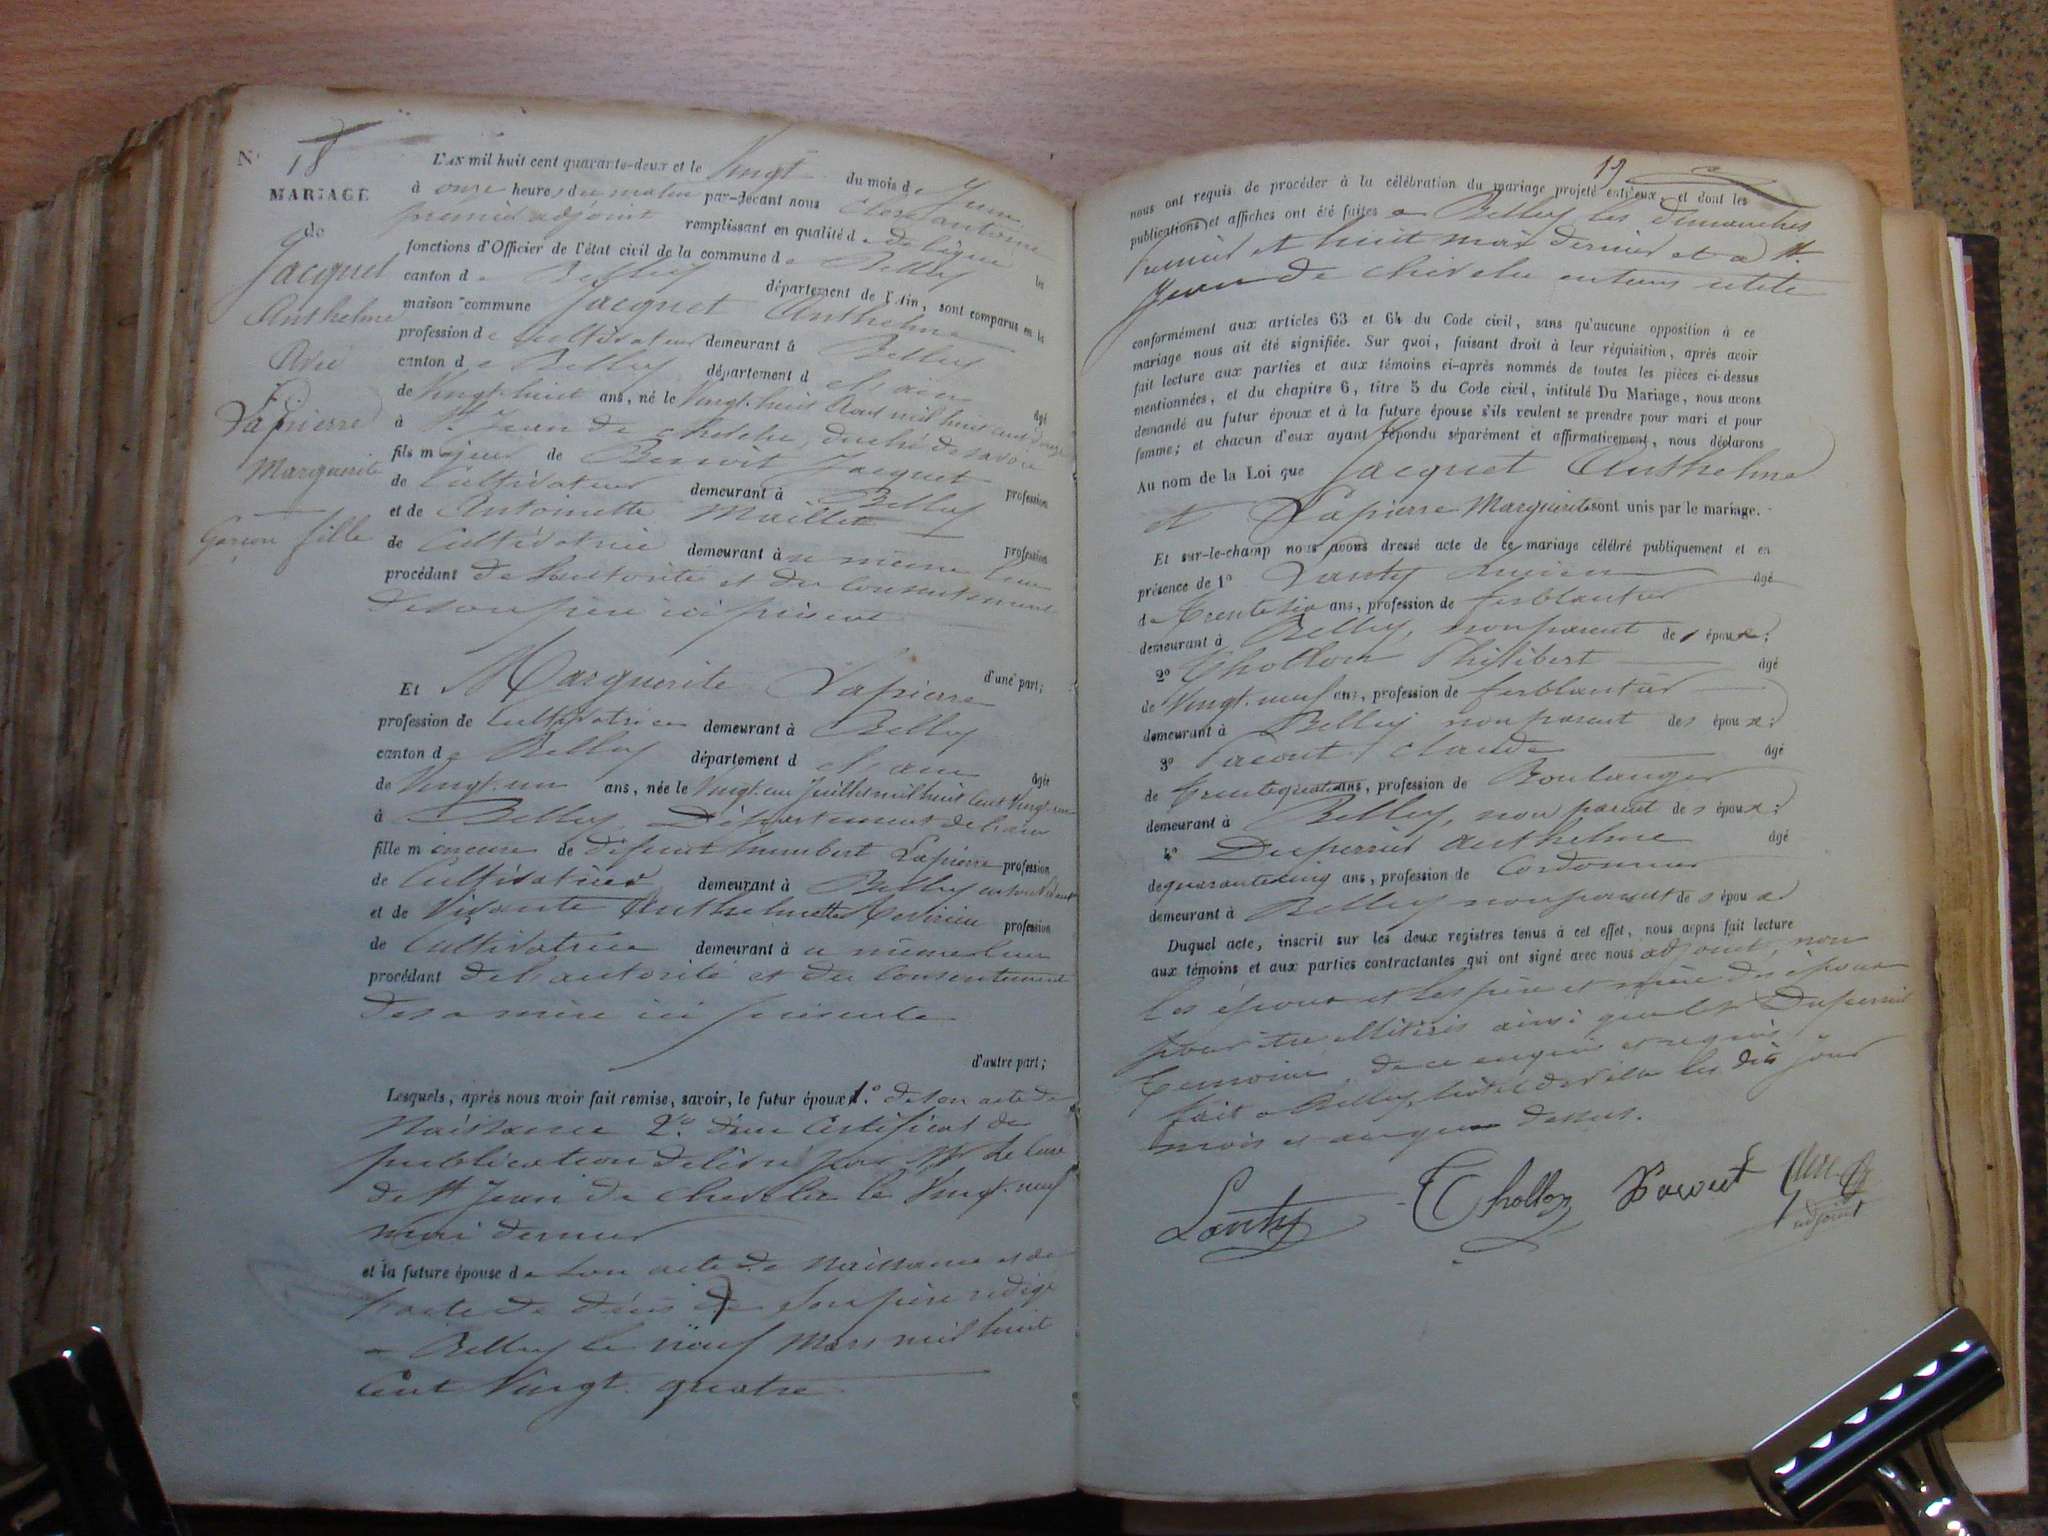 N° 18
MARIAGE
de
Jacquet
Anthelme
Avec
Lapierre
Marguerite
Garçon fille
L'AN mil huit cent quarante-deux et le Vingt du mois de Juin
à onze heures du matin par-devant nous Clerc antoine
premier adjoint remplissant en qualité de délégué les
fonctions d'Officier de l'état civil de la commune de Belley
canton de Belley département de l'Ain, sont comparus en la
maison commune Jacquet Anthelme
profession de Cultivateur demeurant à Belley
canton de Belley département de l'ain âgé
de Vingt-huit ans, né le Vingt-huit Aout mil huit cent
à St Jean de chevelu, duché de savoie
fils majeur de Benoit Jacquet profession
de Cultivateur demeurant à Belley
et de Antoinette Maillet profession
de Cultivatrice demeurant à u même lieu
procédant de l'autorité et du consentement
de son père ici présent
d'une part;
Et Marguerite Lapierre
profession de Cultivatrice demeurant à Belley
canton de Belley département de l'ain âgée
de Vingt-un ans, née le Vingt-un Juillet mil huit cent Vingt-un
à Belley, Département de l'ain
fille mineure de défunt humbert Lapierre profession
de Cultivateur demeurant à Belley
et de Vivante Anthelmette profession
de Cultivatrice demeurant à u même lieu
procédant de l'autorité et du consentement
de sa mère ici présente
d'autre part;
Lesquels, après nous avoir fait remise, savoir, le futur époux 1.° de son acte de
Naissance 2.° d'un Certificat de
publication délivré par Mr le Curé
de St Jean de Chevelu le Vingt-neuf
mai dernier
et la future épouse de son acte de Naissance et de
l'acte de décès de son père rédigé
a Belley le neuf Mars mil huit
Cent Vingt-quatre
19
nous ont requis de procéder à la célébration du mariage projeté entr'eux, et dont les
publications et affiches ont été faites a Belley les dimanches
premier et huit mai dernier et a St
Jean de Chevelu
conformément aux articles 63 et 64 du Code civil, sans qu'aucune opposition à ce
mariage nous ait été signifiée. Sur quoi, faisant droit à leur réquisition, après avoir
fait lecture aux parties et aux témoins ci-après nommés de toutes les pièces ci-dessus
mentionnées, et du chapitre 6, titre 5 du Code civil, intitulé Du Mariage, nous avons
demandé au futur époux et à la future épouse s'ils veulent se prendre pour mari et pour
femme; et chacun d'eux ayant répondu séparément et affirmativement, nous déclarons
Au nom de la Loi que Jacquet Anthelme
et Lapierre Marguerite sont unis par le mariage.
Et sur-le-champ nous avons dressé acte de ce mariage célébré publiquement et en
présence de 1° Lanty Lucien âgé
de trente six ans, profession de ferblantier
demeurant à Belley, non parent des époux;
2° Thollon Philibert âgé
de Vingt-neuf ans, profession de ferblantier
demeurant à Belley non parent des époux;
3° Pacout Claude âgé
de trente quatre ans, profession de Boulanger
demeurant à Belley, non parent des époux;
4° Duperrier Anthelme âgé
de quarante cinq ans, profession de Cordonnier
demeurant à Belley non parent des époux
Duquel acte, inscrit sur les deux registres tenus à cet effet, nous avons fait lecture
aux témoins et aux parties contractantes qui ont signé avec nous adjoint, non
les époux et les père et mère des époux
pour être illitérés ainsi que le Sr Duperrier
temoin, de ce enquis et requis
fait a Belley, hôtel de ville les dits jour
mois et an que dessus.
Lanty Thollon Pacout Clerc
adjoint